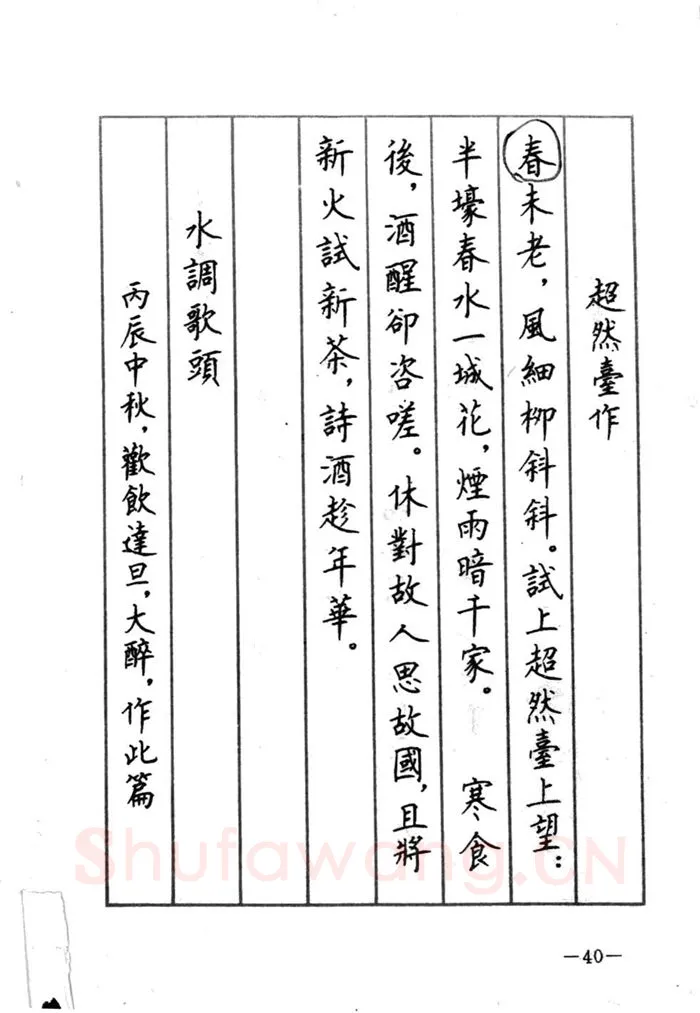 超然臺作
春未老，風細柳斜斜。試上超然臺上望：
半壕春水一城花，煙雨暗千家。　寒食
後，酒醒卻咨嗟。休對故人思故國，且將
新火試新茶，詩酒趁年華。
水調歌頭
丙辰中秋，歡飲達旦，大醉，作此篇
Shufawang.CN
—40—